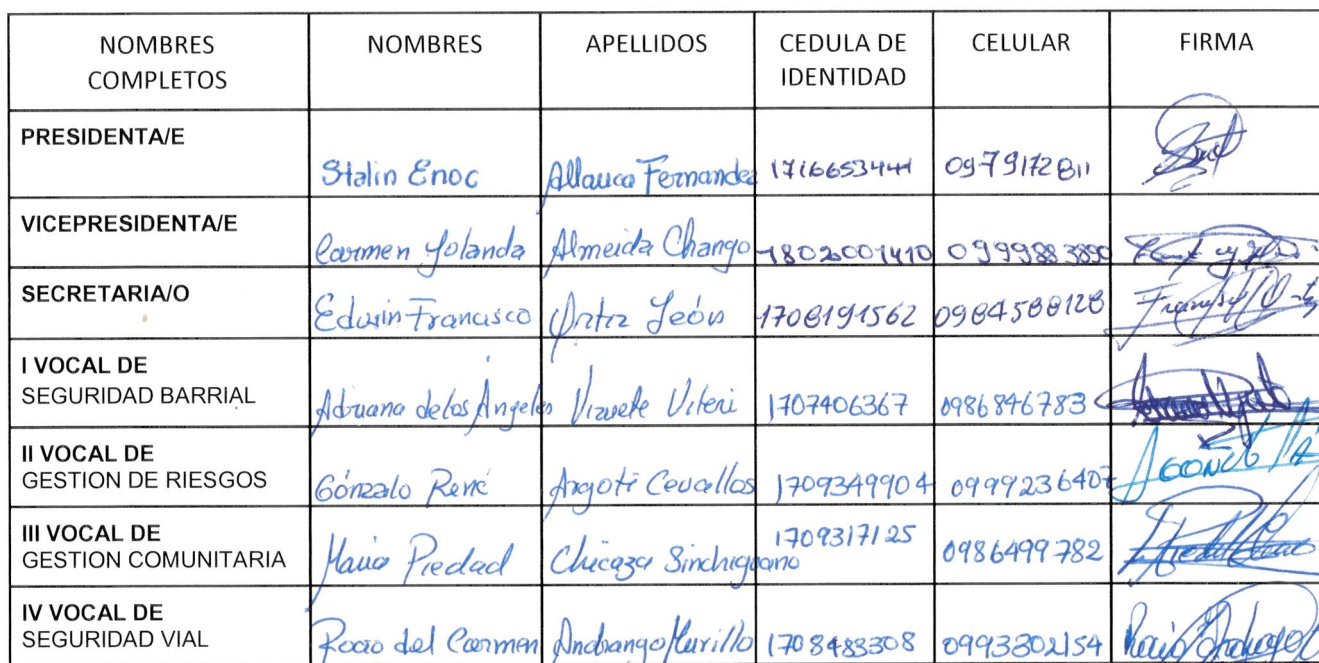 NOMBRES COMPLETOS NOMBRES APELLIDOS CEDULA DE IDENTIDAD CELULAR FIRMA
PRESIDENTA/E Stalin Enoc Allauca Fernandez 1716653441 0979172811
VICEPRESIDENTA/E Carmen Yolanda Almeida Chango 1802001410 0999883890
SECRETARIA/O Edwin Francisco Ortiz León 1708191562 0984588128
I VOCAL DE SEGURIDAD BARRIAL Adriana de los Angeles Vizuete Viteri 1707406367 0986846783
II VOCAL DE GESTION DE RIESGOS Gónzalo René Argoti Cevallos 1709349904 0999236407
III VOCAL DE GESTION COMUNITARIA Maria Piedad Chicaza Sinchiguano 1709317125 0986499782
IV VOCAL DE SEGURIDAD VIAL Rocio del Carmen Andrango Murillo 1708483308 0993302154